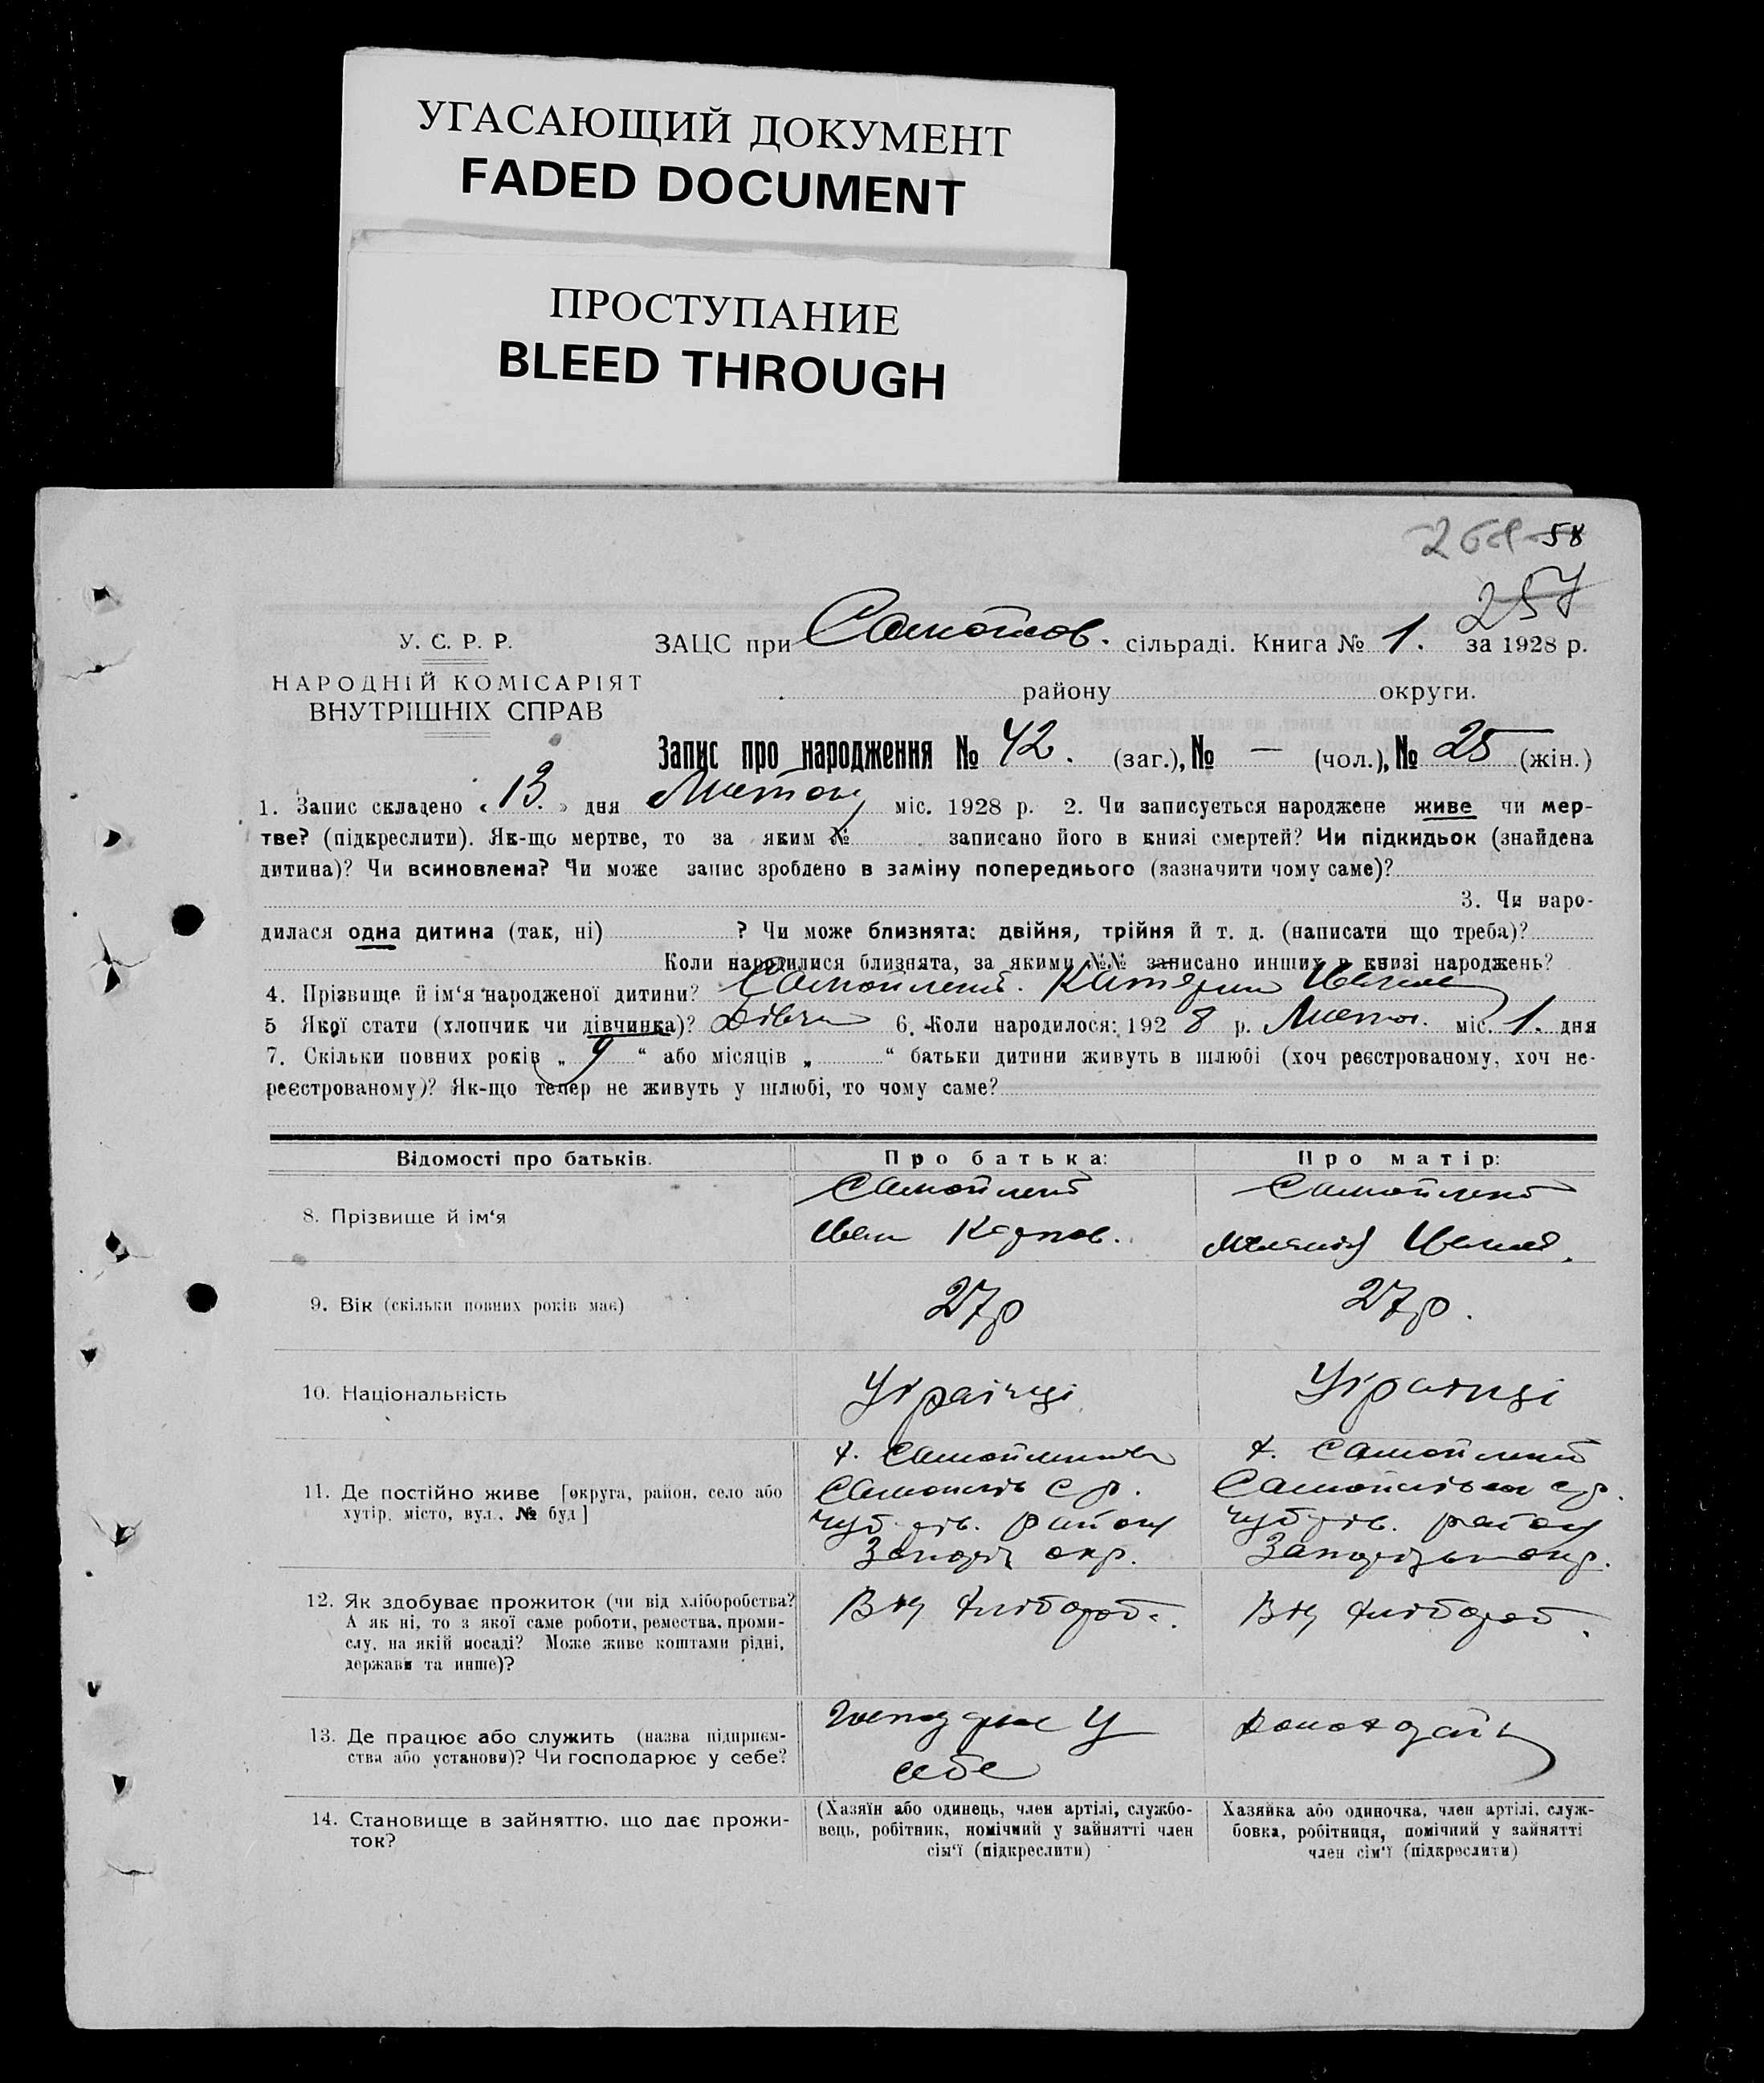 УГАСАЮЩИЙ ДОКУМЕНТ
FADED DOCUMENT
ПРОСТУПАНИЕ
BLEED THROUGH
58
257
У. С. Р. Р.
НАРОДНІЙ КОМІСАРІЯТ
ВНУТРІШНІХ СПРАВ
ЗАЦС при Самойлов. сільраді. Книга № 1. за 1928 р.
району округи.
Запис про народження № 42. (заг.), № — (чол.), № 25 (жін.)
1. Запис складено « 13. » дня міс. 1928 р. 2. Чи записується народжене живе чи мер-
тве? (підкреслити). Як-що мертве, то за яким № записано його в книзі смертей? Чи підкидьок (знайдена
дитина)? Чи всиновлена? Чи може запис зроблено в заміну попереднього (зазначити чому саме)?
3. Чи наро-
дилася одна дитина (так, ні) ? Чи може близнята: двійня, трійня й т. д. (написати що треба)?
Коли народилися близнята, за якими №№ записано инших в книзі народжень?
4. Прізвище й ім‘я народженої дитини? Самойленко Катерина Іванов
5 Якої стати (хлопчик чи дівчинка)? Дівчин 6. Коли народилося: 192 8 р. міс. 1. дня
7. Скільки повних років „ 9 “ або місяців „ “ батьки дитини живуть в шлюбі (хоч реєстрованому, хоч не-
реєстрованому)? Як-що тепер не живуть у шлюбі, то чому саме?
Відомості про батьків. Про батька: Про матір:
8. Прізвище й ім‘я
Самойленко
Иван Карпов.
Самойленко
9. Вік (скільки повних років має) 27 р 27 р.
10. Національність Українці Українці
11. Де постійно живе [округа, район, село або
хутір, місто, вул., № буд]
х. Самойленків
с р.
району
окр.
х. Самойленків
с р.
району
окр.
12. Як здобуває прожиток (чи від хліборобства?
А як ні, то з якої саме роботи, ремества, проми-
слу, на якій посаді? Може живе коштами рідні,
держави та инше)?
Від хлібороб.
Від хлібороб.
13. Де працює або служить (назва підприєм-
ства або установи)? Чи господарює у себе?
у
себе
14. Становище в зайняттю, що дає прожи-
ток?
(Хазяїн або одинець, член артілі, службо-
вець, робітник, помічний у зайнятті член
сім‘ї (підкреслити)
Хазяйка або одиночка, член артілі, служ-
бовка, робітниця, помічний у зайнятті
член сім‘ї (підкреслити)